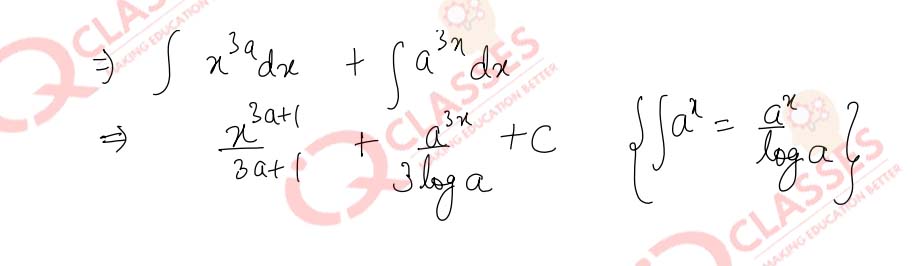 ⇒ ∫ x^{3a} dx + ∫ a^{3x} dx
⇒ \frac{x^{3a+1}}{3a+1} + \frac{a^{3x}}{3 log a} + C { ∫ a^x = \frac{a^x}{log a} }
CLASSES
MAKING EDUCATION BETTER
CLASSES
MAKING EDUCATION BETTER
CLASSES
MAKING EDUCATION BETTER